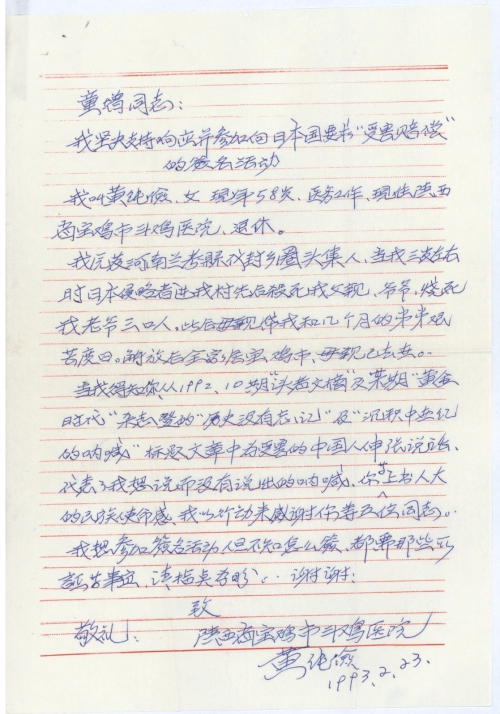 童增同志:
我坚决支持响应并参加向日本国要求“受害赔偿”
的签名活动
我叫黄纯俭、女、现年58岁、医务工作、现住陕西
省宝鸡市斗鸡医院、退休。
我原籍河南兰考县 封乡圈头集人、当我三岁左右
时日本侵略者进我村先后杀死我父亲、爷爷,烧死
我老爷三口人,此后母亲带我和几个月的弟弟艰
苦度日。解放后全家居宝鸡市,母亲已去世。
当我得知你从1992、10期“读者文摘”及某期“黄金
时代”杂志登的“历史没有忘记”及“沉积半世纪
的呐喊”标题文章中为受害的中国人伸张说话、
代表了我想说而没有说出的呐喊、你等上书人大
的民族使命感、我以行动来感谢你等五位同志。
我想参加签名活动但不知怎么签、都要那些
证等事宜、请指点 、谢谢:
致
敬礼! 陕西省宝鸡市斗鸡医院
黄纯俭
1993.2.23.